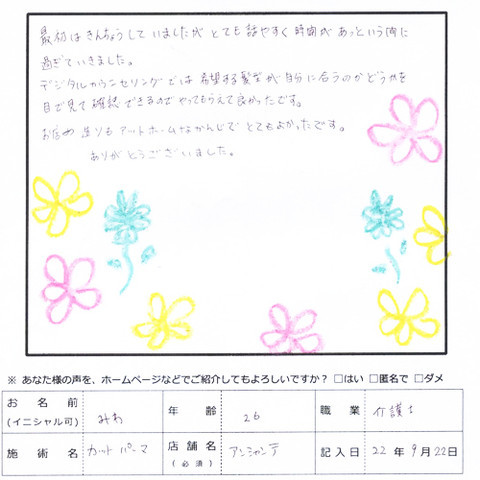 最初はきんちょうしていましたが とても話やすく 時間が あっという間に
過ぎていきました。
デジタルカウンセリングでは 希望する髪型が自分に合うのかどうかを
目で見て確認できるのでやってもらえて良かったです。
お店の 造りも アットホームなかんじで とてもよかったです。
ありがとうございました。
※ あなた様の声を、ホームページなどでご紹介してもよろしいですか? □はい □匿名で □ダメ
お名前 (イニシャル可) みわ 年齢 26 職業 介護士
施術名 カット パーマ 店舗名 (必須) アンシャンテ 記入日 22年 9月 22日